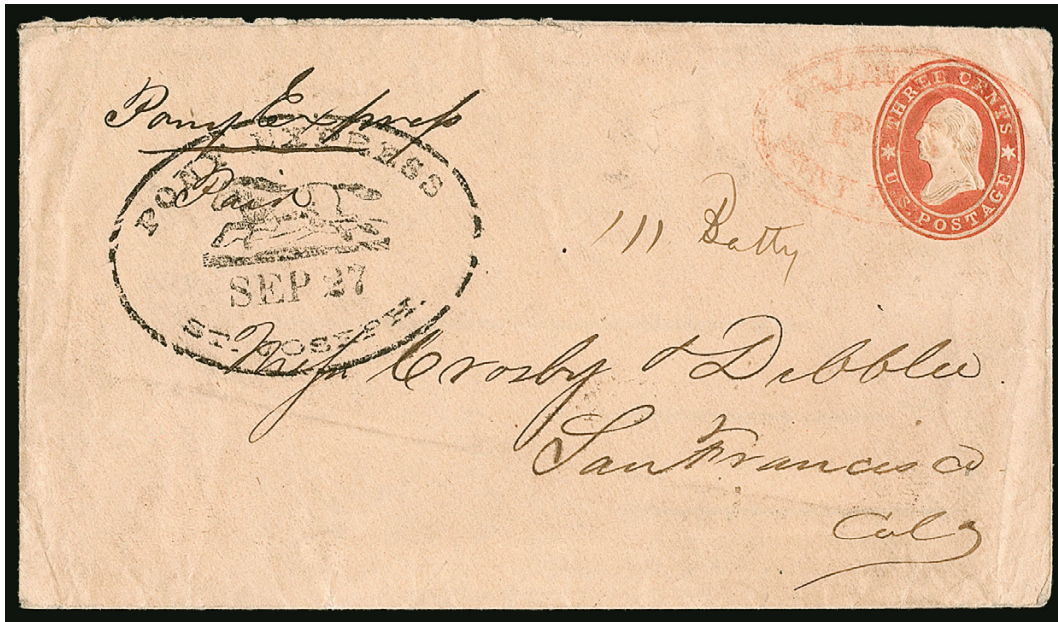 Pony Express
Paid
PONY EXPRESS
SEP 27
ST. JOSEPH.
THREE CENTS
U.S. POSTAGE
111 Batty
Mess Crosby & Dibblee
San Francisco
Cal